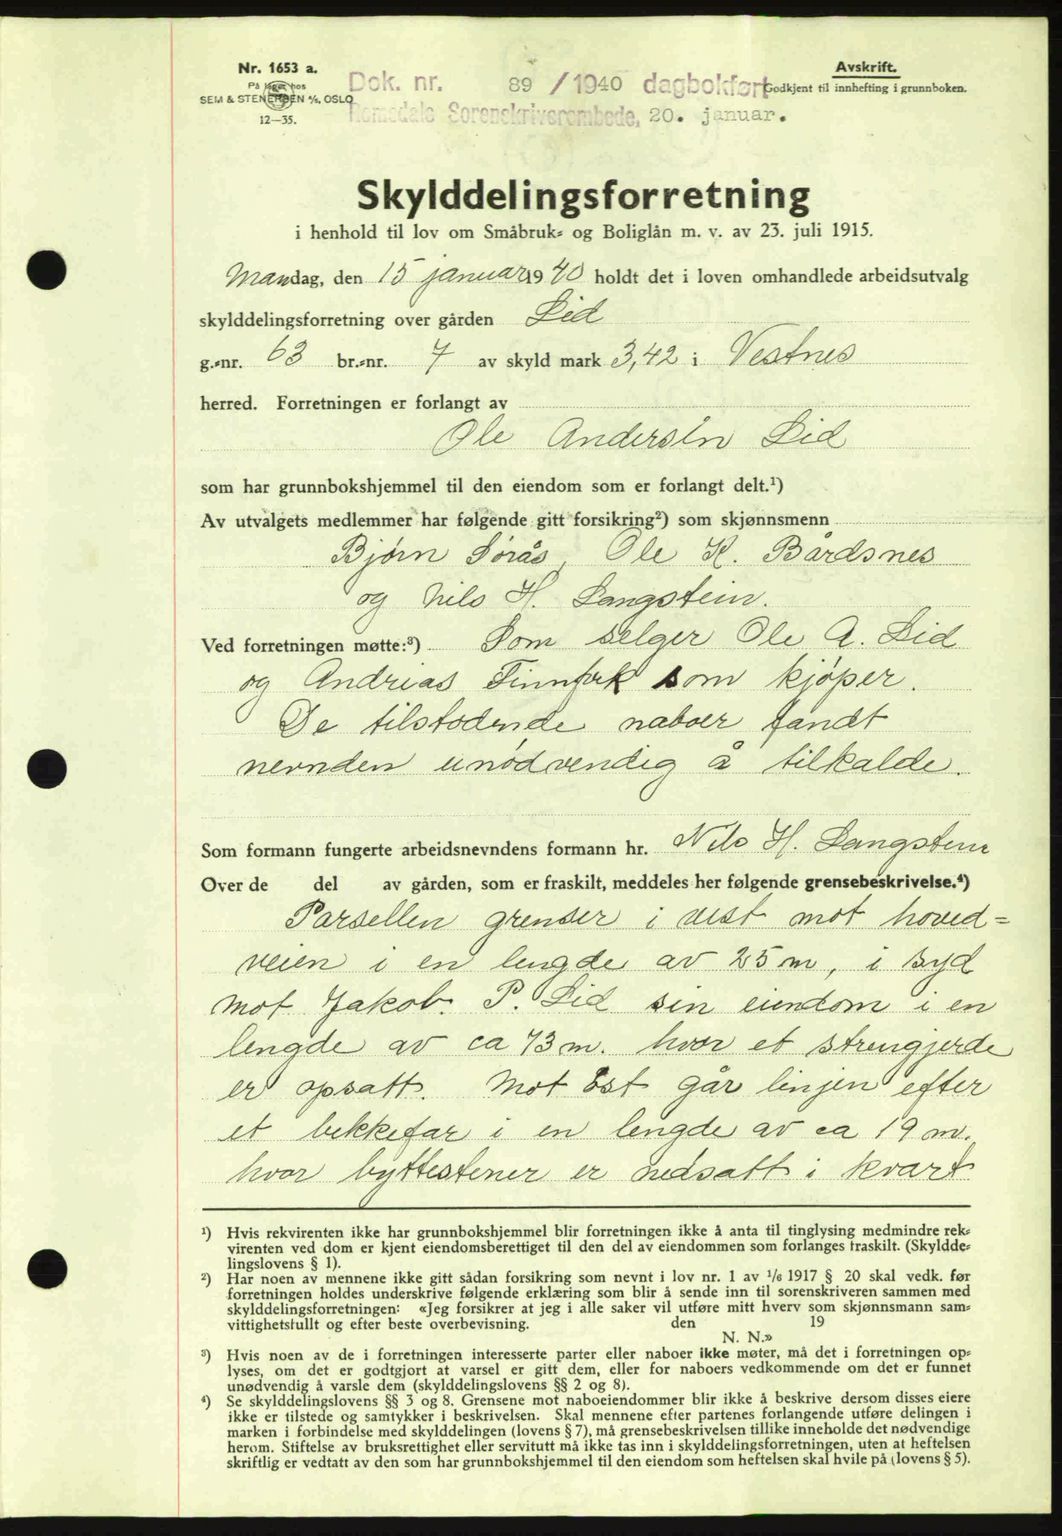 Nr. 1653 a.
På lager hos
SEM & STENERSEN A/S, OSLO
12—35.
Avskrift.
Dok. nr. 89 / 1940 dagbokført
Godkjent til innhefting i grunnboken.
Romsdale Sorenskriverembede, 20. januar.
Skylddelingsforretning
i henhold til lov om Småbruk- og Boliglån m. v. av 23. juli 1915.
Mandag, den 15 januar 1940 holdt det i loven omhandlede arbeidsutvalg
skylddelingsforretning over gården Lid
g.-nr. 63 br.-nr. 7 av skyld mark 3,42 i Vestnes
herred. Forretningen er forlangt av
Ole Andersen Lid
som har grunnbokshjemmel til den eiendom som er forlangt delt.¹)
Av utvalgets medlemmer har følgende gitt forsikring²) som skjønnsmenn
Bjørn Sørås, Ole K. Bårdsnes
og Nils H. Langstein.
Ved forretningen møtte:³) Som selger Ole A. Lid
og Andrias Finnfrk som kjøper.
De tilstødende naboer fandt
nevnden unødvendig å tilkalde.
Som formann fungerte arbeidsnevndens formann hr. Nils H. Langstein
Over de del av gården, som er fraskilt, meddeles her følgende grensebeskrivelse.⁴)
Parsellen grenser i vest mot hoved=
veien i en lengde av 25 m, i syd
mot Jakob. P. Lid sin eiendom i en
lengde av ca 73 m. hvor et strengjerde
er opsatt. Mot Øst går linjen efter
et bekkefar i en lengde av ca 19 m.
hvor byttestener er nedsatt i kvart
¹) Hvis rekvirenten ikke har grunnbokshjemmel blir forretningen ikke å anta til tinglysing medmindre rek-
virenten ved dom er kjent eiendomsberettiget til den del av eiendommen som forlanges fraskilt. (Skyldde-
lingslovens § 1).
²) Har noen av mennene ikke gitt sådan forsikring som nevnt i lov nr. 1 av 1/6 1917 § 20 skal vedk. før
forretningen holdes underskrive følgende erklæring som blir å sende inn til sorenskriveren sammen med
skylddelingsforretningen: «Jeg forsikrer at jeg i alle saker vil utføre mitt hverv som skjønnsmann sam-
vittighetsfullt og efter beste overbevisning. den 19
N. N.»
³) Hvis noen av de i forretningen interesserte parter eller naboer ikke møter, må det i forretningen op-
lyses, om det er godtgjort at varsel er gitt dem, eller for naboers vedkommende om det er funnet
unødvendig å varsle dem (skylddelingslovens §§ 2 og 8).
⁴) Se skylddelingslovens §§ 3 og 8. Grensene mot naboeiendommer blir ikke å beskrive dersom disses eiere
ikke er tilstede og samtykker i beskrivelsen. Skal mennene efter partenes forlangende utføre delingen i
marken i forbindelse med skylddelingen (lovens § 7), må grensebeskrivelsen tillike inneholde det nødvendige
herom. Stiftelse av bruksrettighet eller servitutt må ikke tas inn i skylddelingsforretningen, uten at heftelsen
skriftlig er vedtatt av den som har grunnbokshjemmel til den eiendom som heftelsen skal hvile på (lovens § 5).